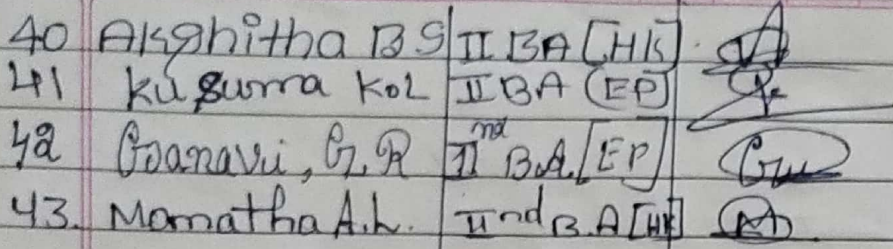 40 Akshitha B S II BA [HK]
41 Kusuma KOL II BA (EP]
42 Goanavi, G. R IInd B.A. [EP]
43. Mamatha A.L. IInd B.A [HK]